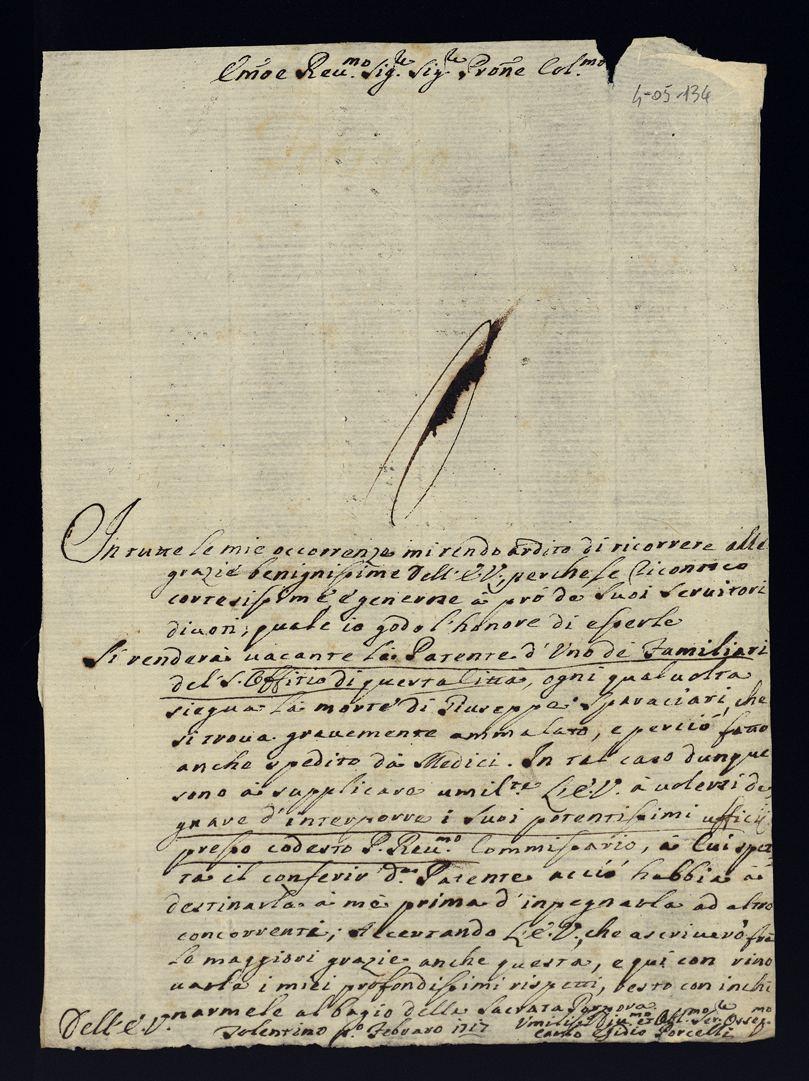 Em̃oe Reu.mo Sig.re Sig.re Pron̄e Col.mo
4-05-134
In tutte le mie occorrenze mi rendo ardito di ricorrere alle
grazie benignissime dell'E.V., perche se riconosco
cortesissime, è generose à prò de Suoi Seruitori
diuoti, quale io godo l'honore di esserle
Si renderà uacante la Patente d'Uno dè Familiari
del S. Offitio di questa Città, ogni qualuolta
siegua la morte di Giuseppe Sparaciari, che
si troua grauemente ammalato, e perciò fatto
anche spedito dà Medici. In tal caso dunque
sono à supplicare umil.te L'E.V. à uolersi de
gnare d'interporre i Suoi potentissimi ufficij
presso codesto P. Reu.mo Commissario, à lui spet
ta il conferir d.a Patente acciò habbia à
destinarla à mè prima d'inpegnarla ad altro
concorrente; Accertando L'E.V., che ascriuerò frà
le maggiori grazie anche questa, e qui con rino
uarle i miei profondissimi rispetti, resto con inchi
narmele al bagio della Sacrata Porpora
Dell'E.V.
Tolentino p.o Febraro 1717
Umiliss. Diu.mo et Obl. Ser. Osseq.mo
Carlo Egidio Porcelli